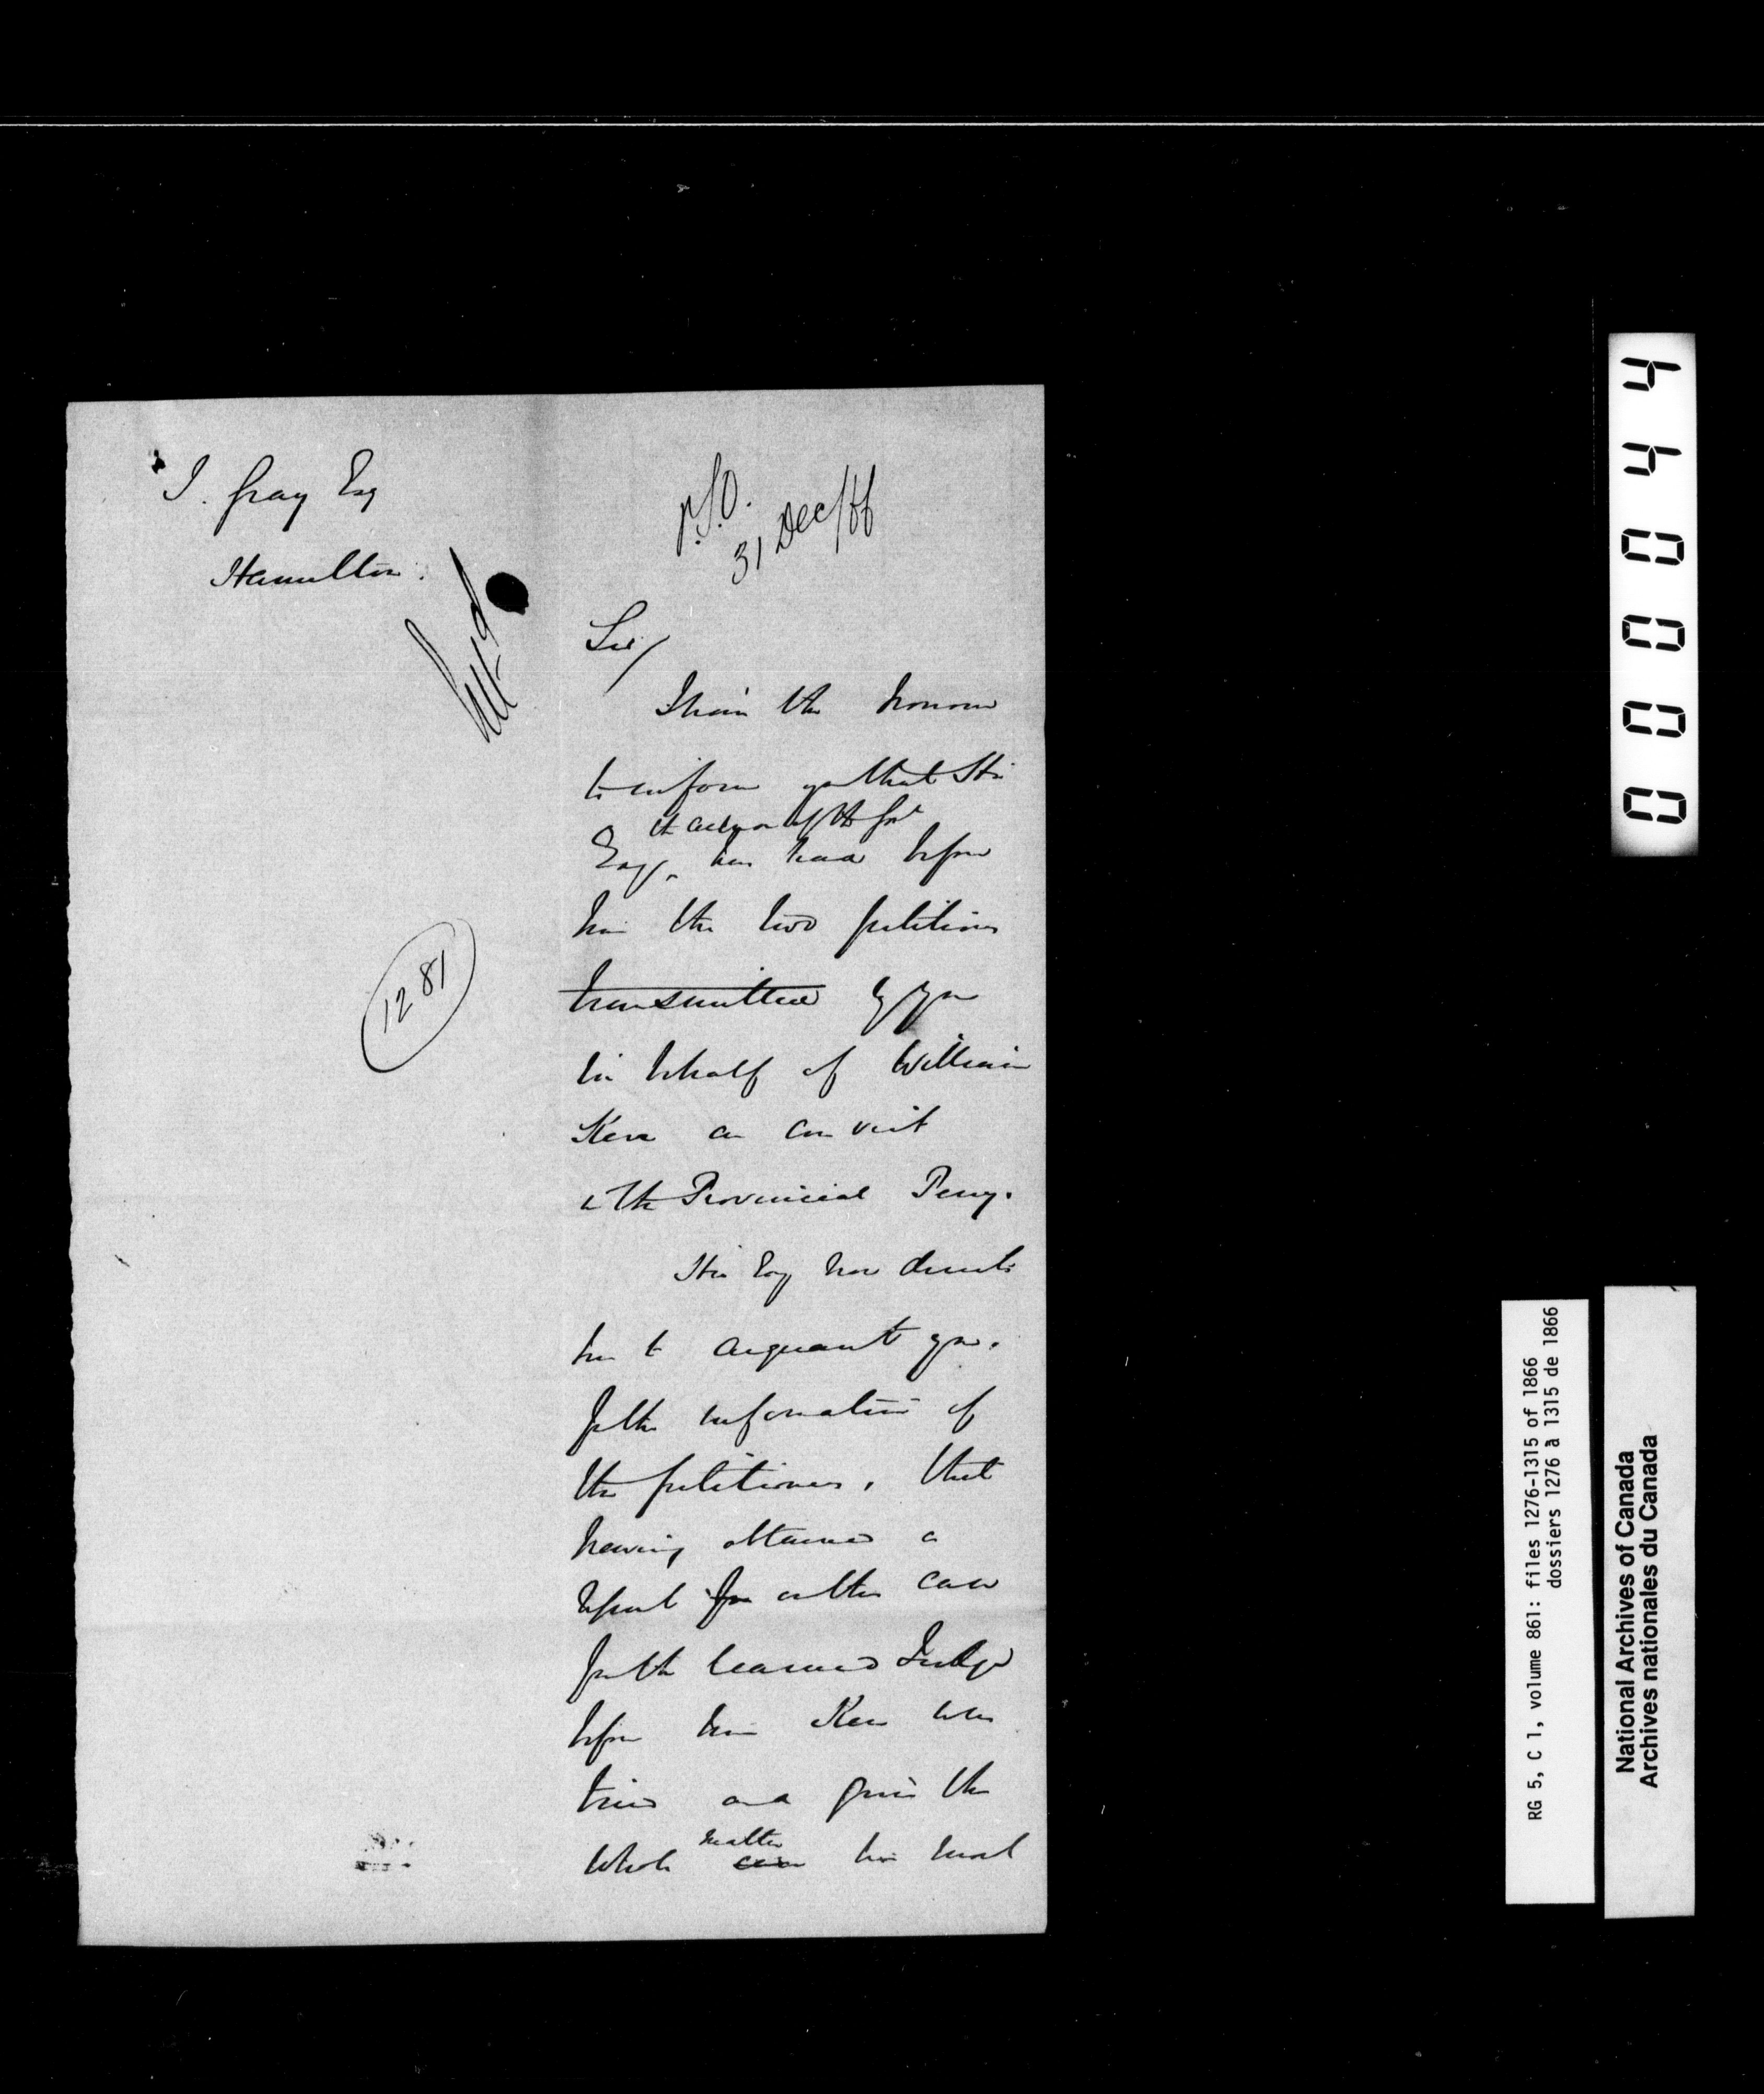 J. Gray Esq
Hamilton.
P.S.O.
31 Dec/66
1281
Sir/
I have the honour
to inform you that His
the Admor of the Govt
Exy, has had before
him the two petitions
transmitted by you
in behalf of William
Kerr a convict
in the Provincial Peny.
His Exy now directs
me to acquaint you.
for the information of
the petitioners, that
having obtained a
report for on the case
from the learned Judge
before whom Kerr was
tried and given the
matter
whole case his most
000044
RG 5, C 1, volume 861: files 1276-1315 of 1866
dossiers 1276 à 1315 de 1866
National Archives of Canada
Archives nationales du Canada